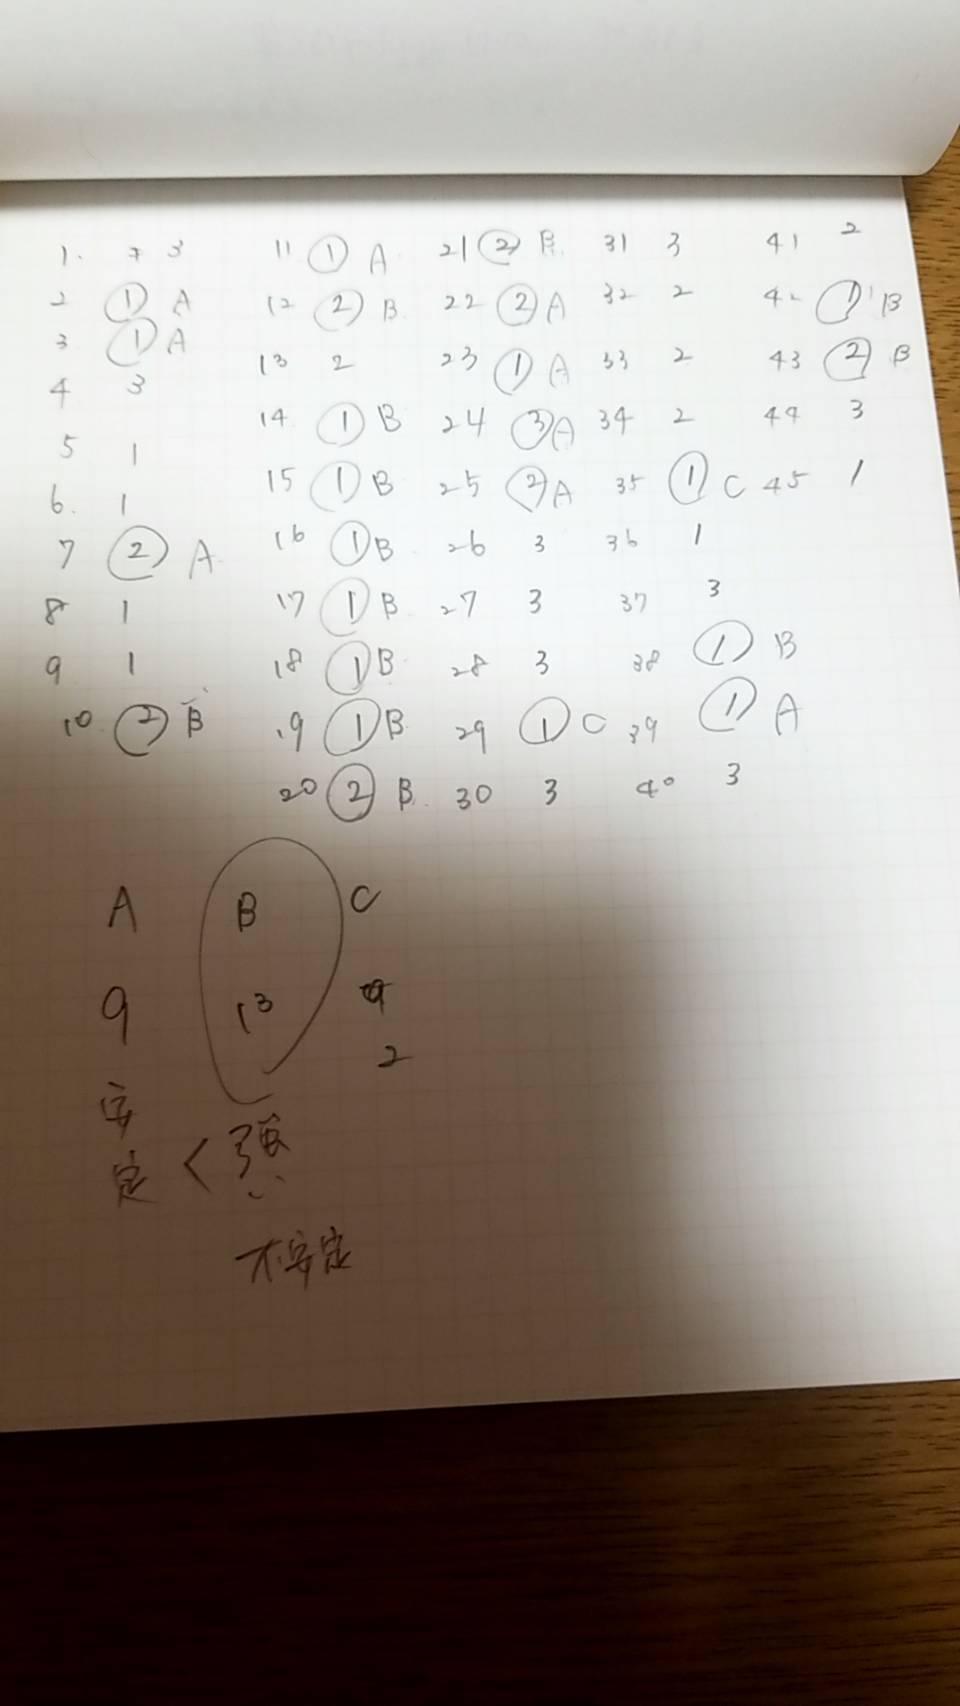 1. 3 11 ① A 21 ② B 31 3 41 2
2 ① A 12 ② B 22 ② A 32 2 42 ① B
3 ① A 13 2 23 ① A 33 2 43 ② B
4 3 14 ① B 24 ③ A 34 2 44 3
5 1 15 ① B 25 ② A 35 ① C 45 1
6. 1 16 ① B 26 3 36 1
7 ② A 17 ① B 27 3 37 3
8 1 18 ① B 28 3 38 ① B
9 1 19 ① B 29 ① C 39 ① A
10 ② B 20 ② B 30 3 40 3
A B C
9 13
2
安定 < 強い
不安定